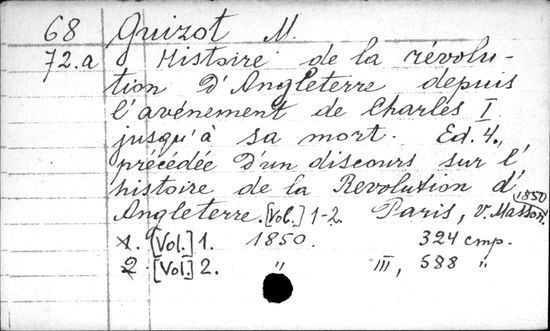 68 Guizot M.
72.a Histoire de la révolu-
tion D'Angleterre depuis
l'avénement de Charles I
jusqu'à sa mort. Ed. 4.,
précédée D'un discours sur l'
histoire de la Revolution d'
1850
Angleterre. [Vol.] 1-2. Paris, V. Masson.
1. [Vol.] 1. 1850. 324 стр.
2. [Vol.] 2. " III, 588 "